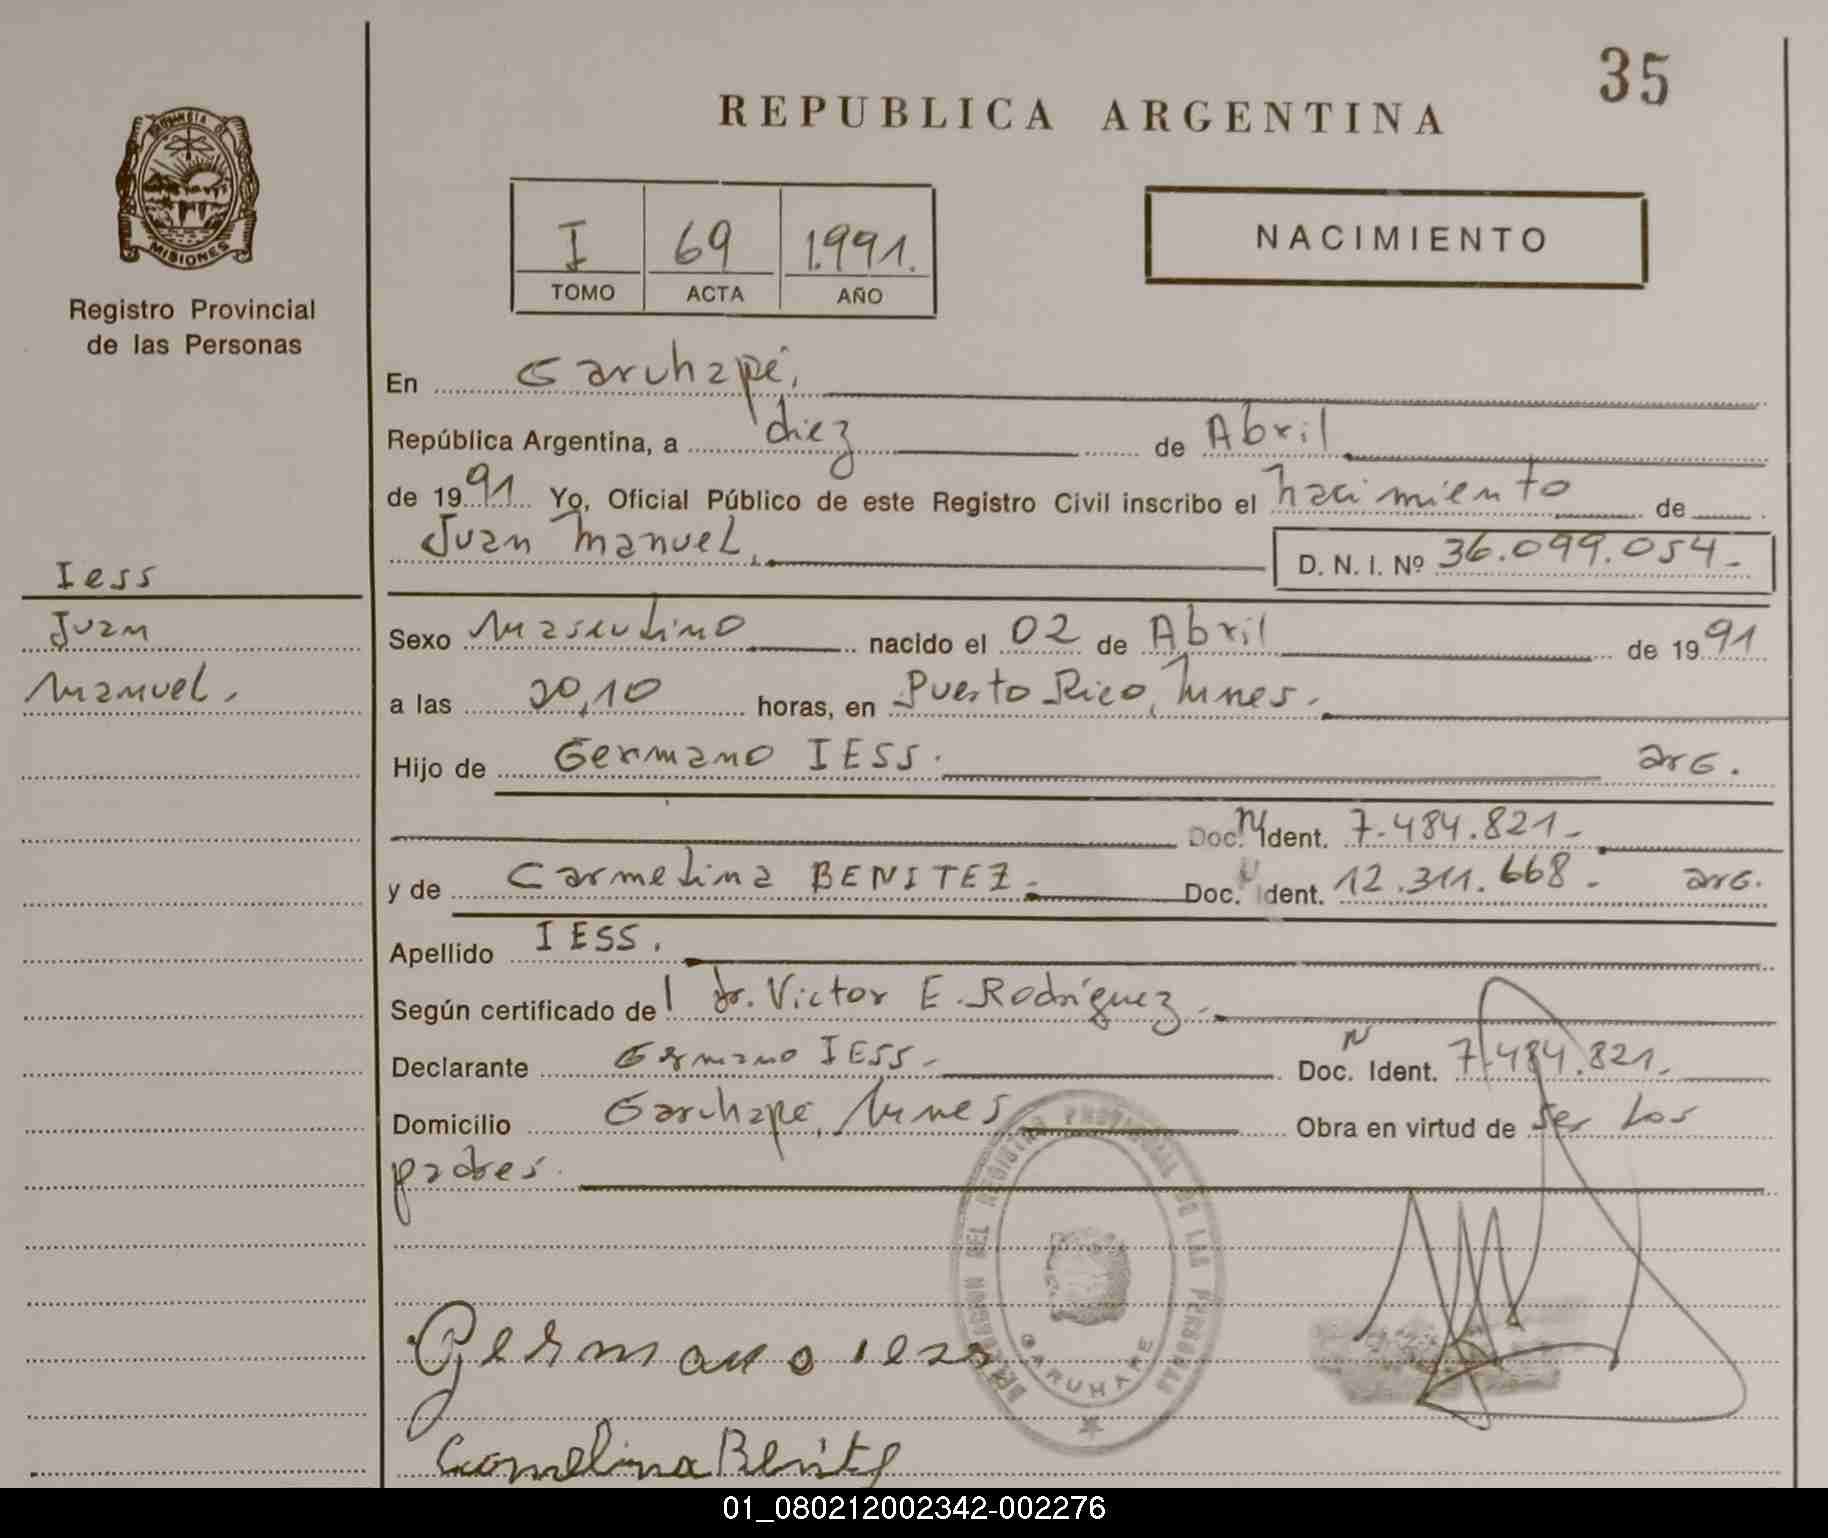 35
REPUBLICA ARGENTINA
PROVINCIA DE
MISIONES
Registro Provincial
de las Personas
I 69 1.991.
TOMO ACTA AÑO
NACIMIENTO
En Garuhapé,
República Argentina, a diez de Abril
de 1991 Yo, Oficial Público de este Registro Civil inscribo el nacimiento de
Juan Manuel, D. N. I. Nº 36.099.054.-
Iess
Juan
Manuel.
Sexo Masculino nacido el 02 de Abril de 1991
a las 20,10 horas, en Puerto Rico, Mnes.
Hijo de Germano IESS. arg.
Doc. M Ident. 7.484.821.-
y de Carmelina BENITEZ.- Doc. N Ident. 12.311.668.- arg.
Apellido IESS.
Según certificado de l dr. Victor E. Rodríguez.-
Declarante Germano IESS.- Doc. N Ident. 7.484.821.
Domicilio Garuhapé, Mnes Obra en virtud de ser los
padres.
DELEGACION DEL REGISTRO PROVINCIAL DE LAS PERSONAS
GARUHAPE
Germano iess
Carmelina Benitez
01_080212002342-002276